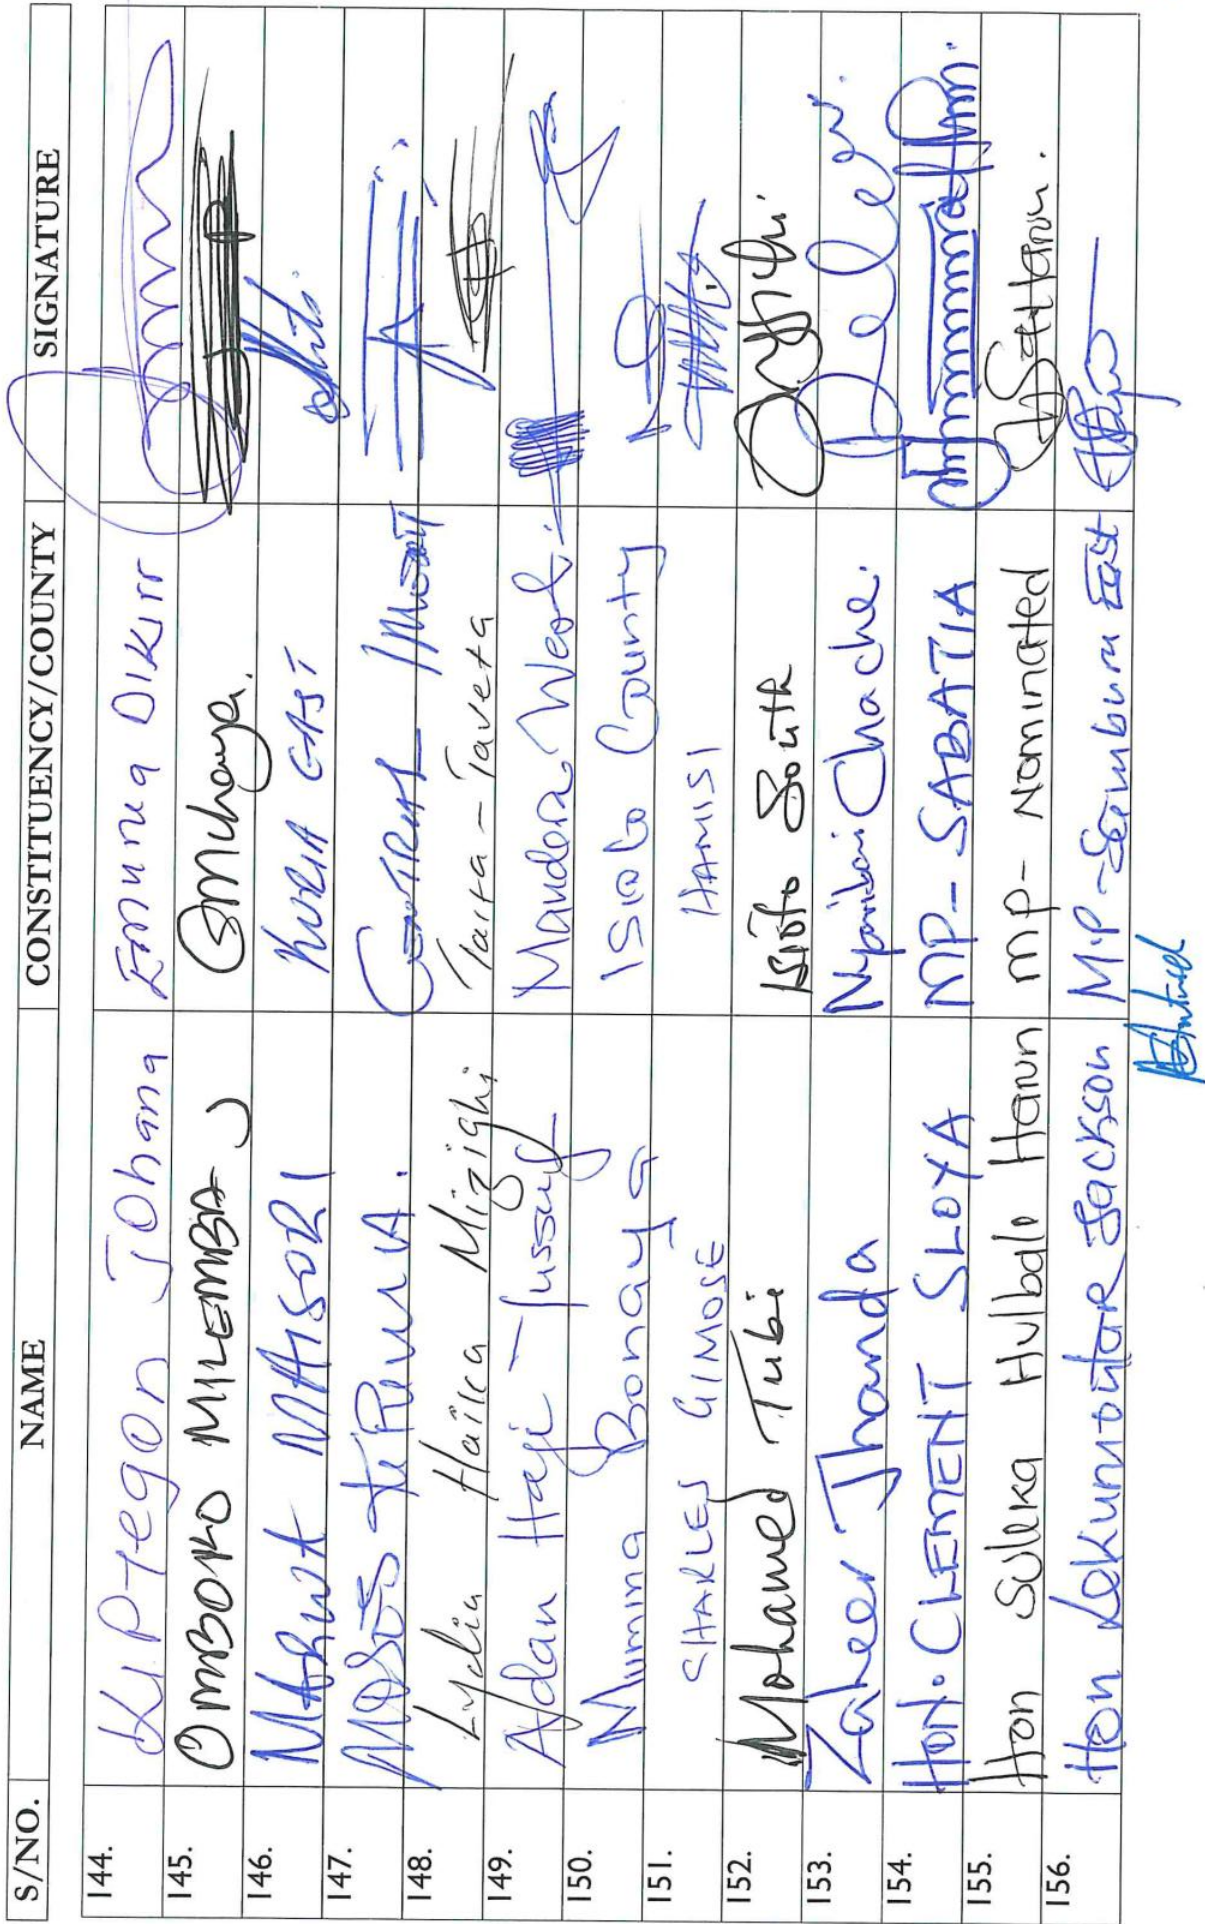 S/NO. NAME CONSTITUENCY/COUNTY SIGNATURE
144. Kiptegon Johana Emurua Dikirr
145. OMBOKO MILEMBA Emuhaya.
146. MARWA MAISORI KURIA EAST
147. MOSES KURIMA. CENTRAL IMENTI
148. Lydia Haika Mizighi Taita - Taveta
149. Adan Haji - Yussuf Mandera West.
150. Mumina Bonaya ISiolo County
151. CHARLES GIMOSE HAMISI
152. Mohamed Tubi Isiolo South
153. Zaheer Jhanda Nyaribari Chache.
154. HON. CLEMENT SLOYA MP - SABATIA
155. Hon Suleka Hulbale Harun MP - Nominated
156. Hon Lekumontare Jackson M.P - Samburu East